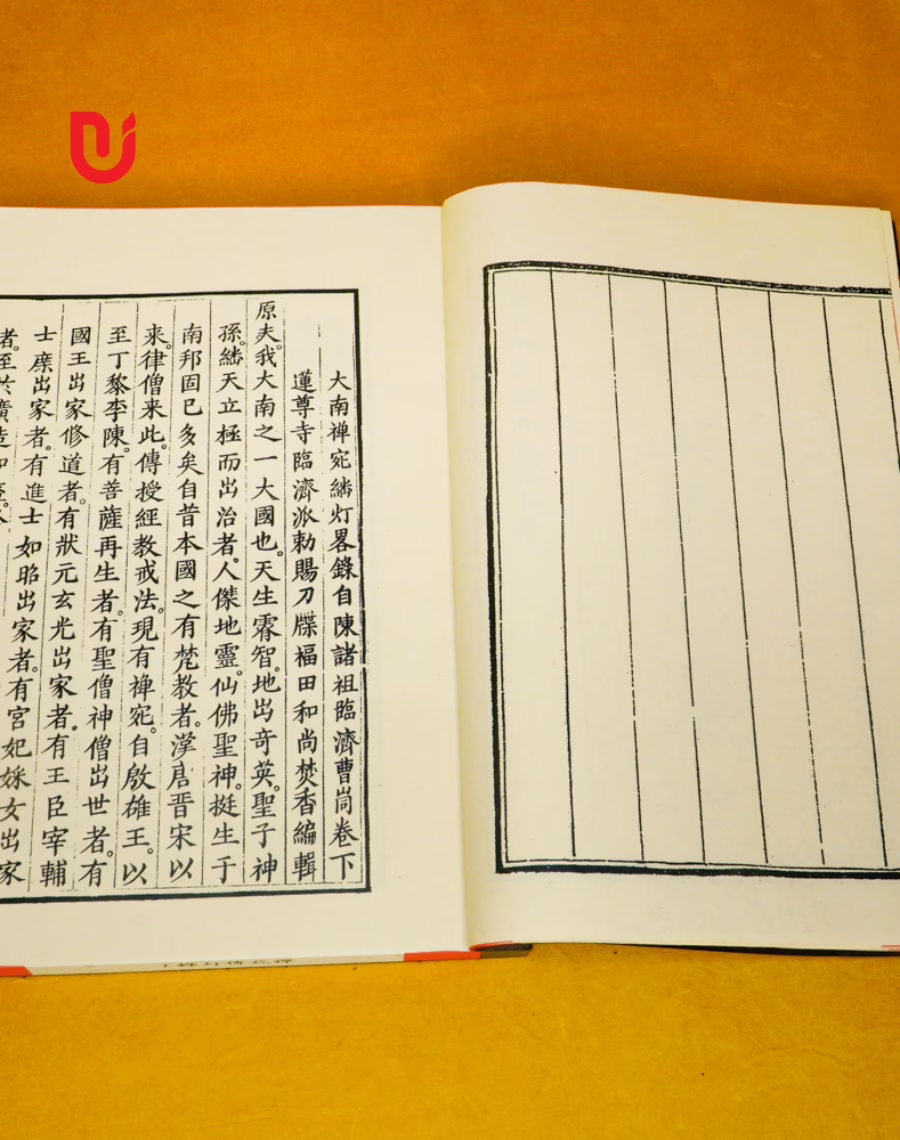 大南禅宛繼灯畧錄自陳諸祖臨濟曹峝卷下
蓮尊寺臨濟派勅賜刀牒福田和尚焚香編輯
原夫。我大南之一大國也。天生睿智。地出奇英。聖子神
孫。繼天立極而出治者。人傑地靈。仙佛聖神。挺生于
南邦固已多矣自昔本國之有梵教者。漢唐晋宋以
来。律僧来此。傳授經教戒法。現有禅宛。自啟雄王。以
至丁黎李陳。有善薩再生者。有聖僧神僧出世者。有
國王出家修道者。有狀元玄光出家者。有王臣宰輔
士庶出家者。有進士如昭出家者。有宮妃婇女出家
者。至於廣造